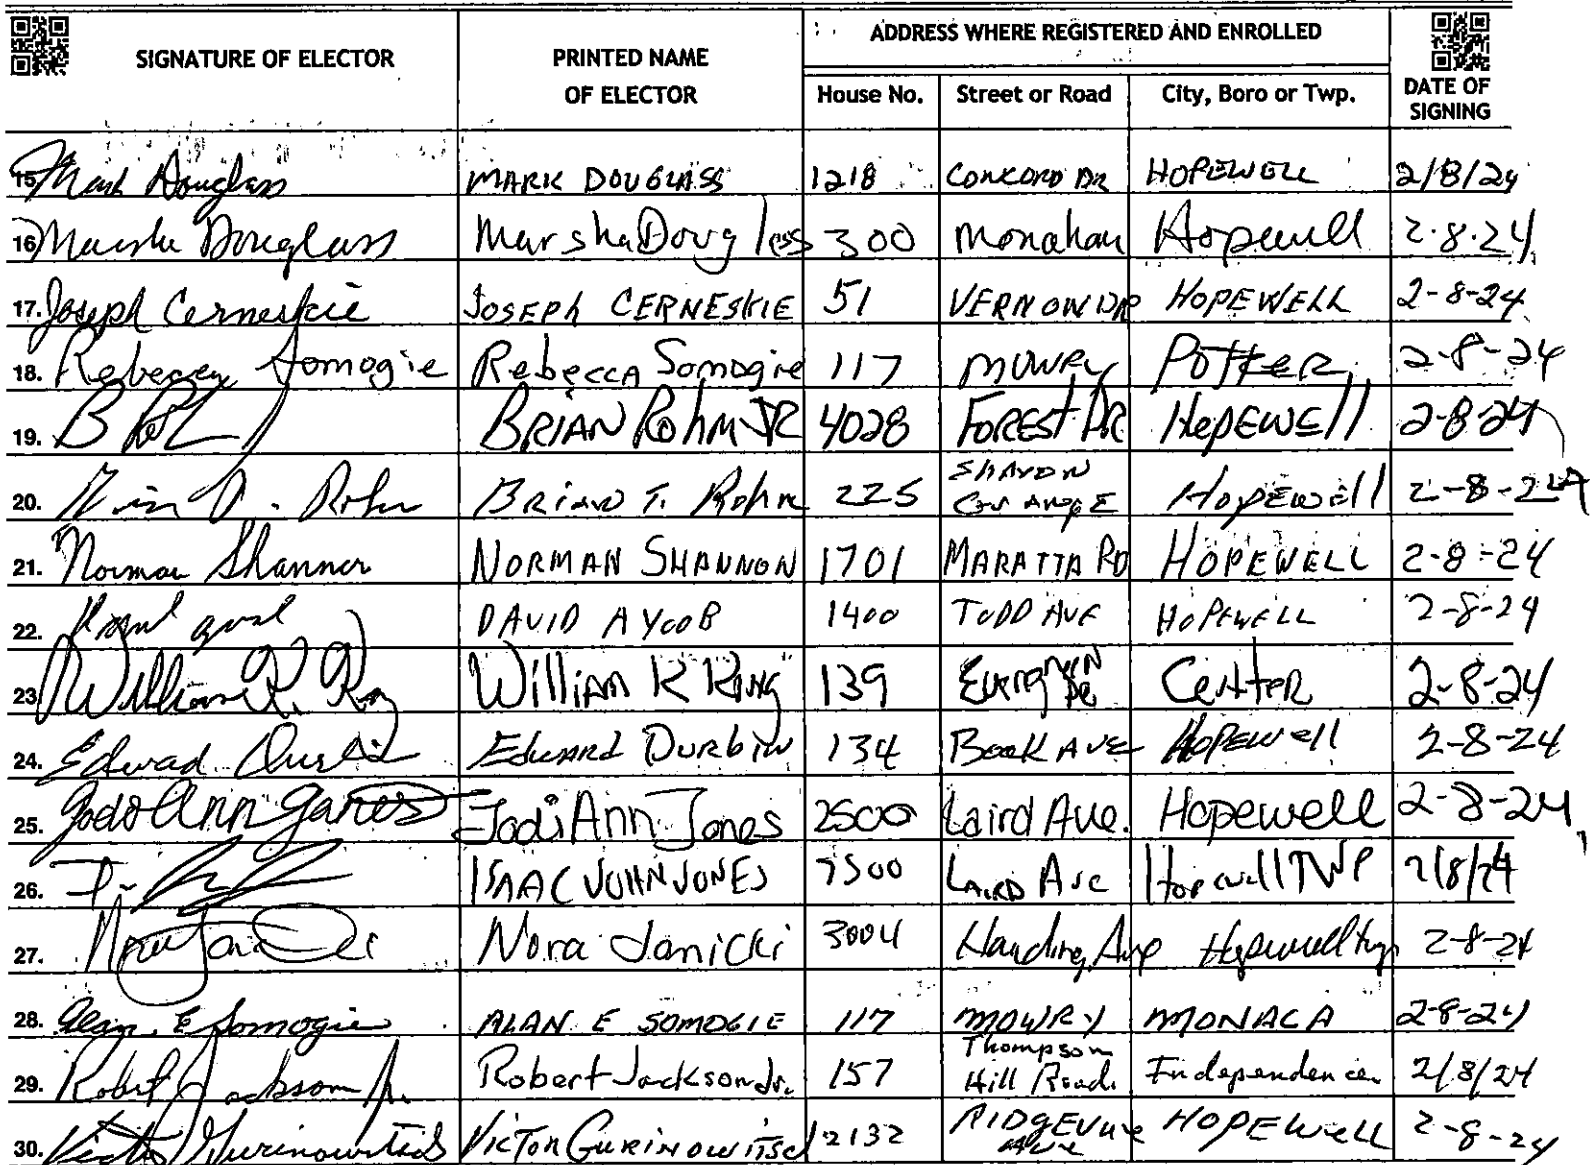 SIGNATURE OF ELECTOR PRINTED NAME OF ELECTOR ADDRESS WHERE REGISTERED AND ENROLLED DATE OF SIGNING
House No. Street or Road City, Boro or Twp.
15. Mark Douglass MARK DOUGLASS 1218 CONCORD DR HOPEWELL 2/8/24
16. Marsha Douglass Marsha Dougless 300 Monahan Hopewell 2.8.24
17. Joseph Cerneskie JOSEPH CERNESKIE 51 VERNON DR HOPEWELL 2-8-24
18. Rebecca Somogie Rebecca Somogie 117 MOWRY POTTER 2-8-24
19. BRIAN Rohm JR 4028 FOREST DR HOPEWEll 2-8-24
20. Rohm BRIAN T. Rohm 225 SHARON GRANGE HOPEWEll 2-8-24
21. Norman Shannon NORMAN SHANNON 1701 MARATTA RD HOPEWELL 2-8-24
22. DAVID AYOOB 1400 TODD AVE HOPEWELL 2-8-24
23. William R. King William R King 139 Evergreen DR Center 2-8-24
24. Edward Durbin Edward Durbin 134 Book AVE HOPEWell 2-8-24
25. Jodi Ann Jones Jodi Ann Jones 2500 Laird Ave. Hopewell 2-8-24
26. ISAAC JOHN JONES 2500 LAIRD Ave Hopewell TWP 2/8/24
27. Nora Janicki Nora Janicki 3004 Harding Ave Hopewell twp 2-8-24
28. Alan E Somogie ALAN E SOMOGIE 117 MOWRY MONACA 2-8-24
29. Robert Jackson Jr. Robert Jackson Jr. 157 Thompson Hill Road. Independence 2/8/24
30. Victor Gurinowitsch VICTOR GURINOWITSCH 2132 RIDGEVUE AVE HOPEWell 2-8-24